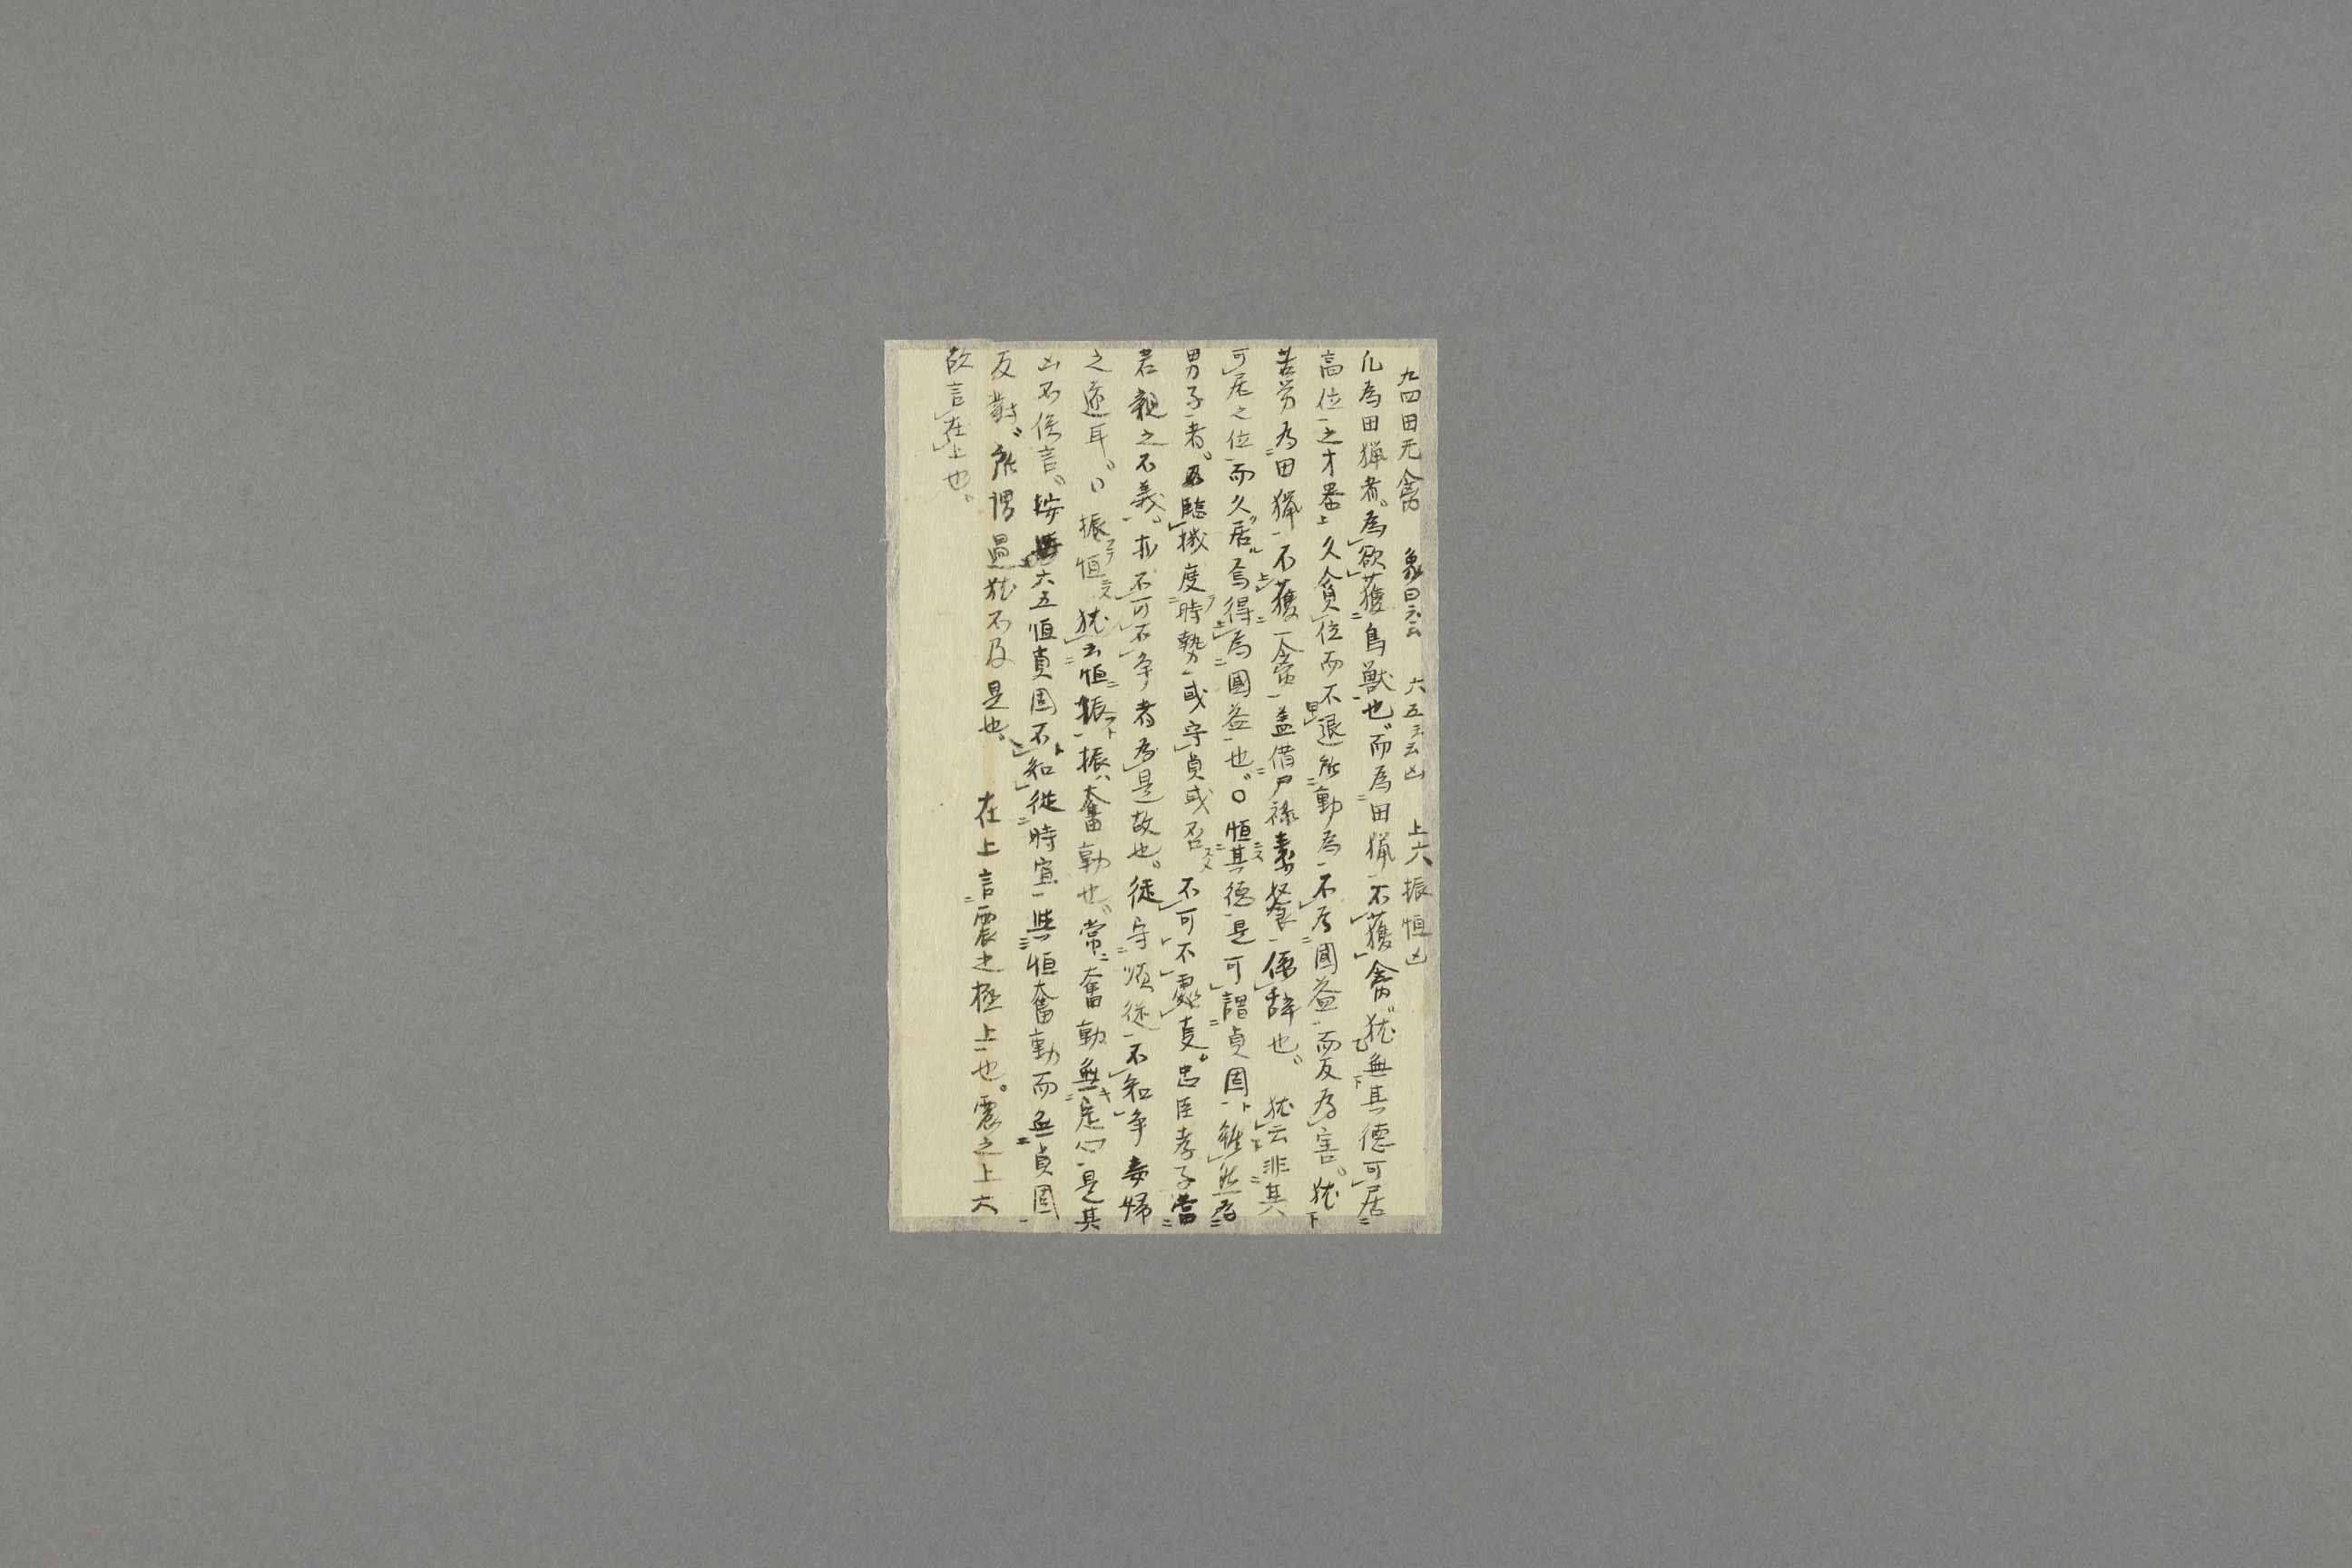 九四田无禽 象曰云云 六五云云凶 上六振恒凶
凡為田猟者。為欲獲鳥獣也。而為田猟不獲禽。猶無其徳可居
高位之才器上久貪位而不退所動為不為国益而反為害。猶下
苦労為田猟不獲一禽蓋借尸禄素餐係辞也。 猶云非其
可居之位而久居。焉得為国益也。〇恒其徳是可謂貞固雖然為
男子者。臨機度時勢或守貞或否 不可不変。忠臣孝子當
君親之不義。亦不可不争者為是故也。徒守順従不知争婦
之道耳。〇振恒猶云恒振振奮動也。常奮動無定心是其
凶不俟言。按六五恒貞固不知従時宜與恒奮動而無貞固
反對。所謂過猶不及是也 在上言震之極上也。震之上六
故言在上也。